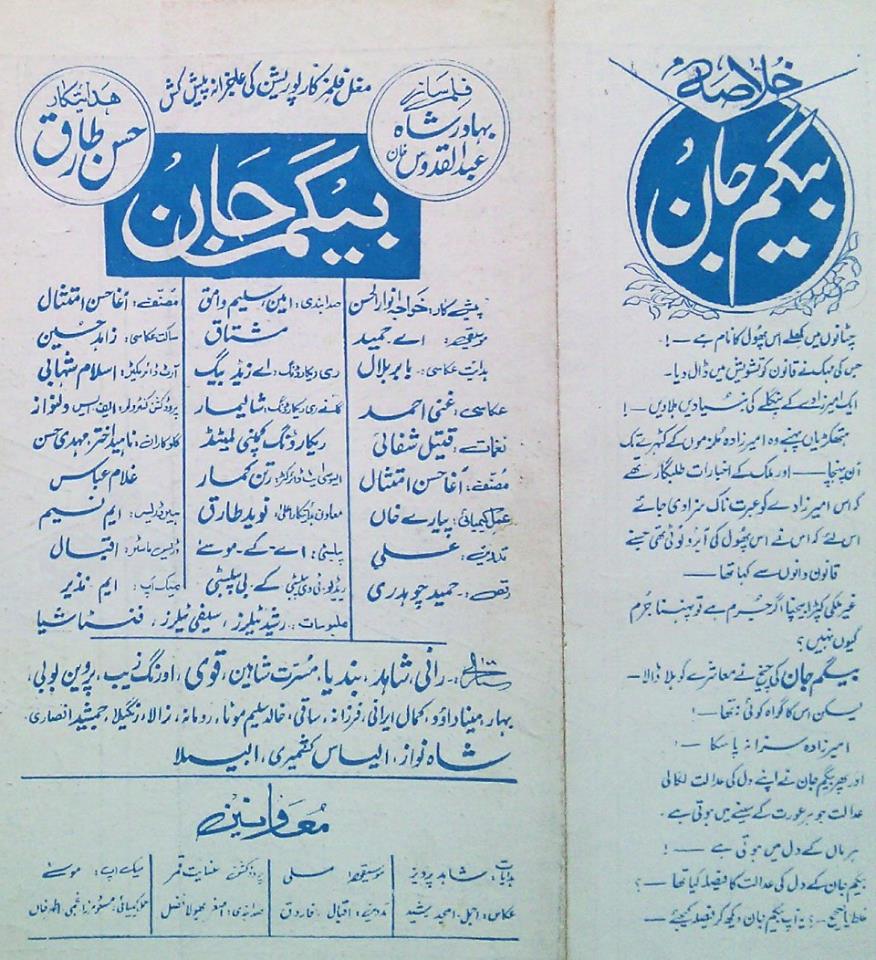 مغل فلمز کارپوریشن کی عاجزانہ پیش کش
فلمساز
بہادر شاہ
عبدالقدوس خان
ھدایتکار
حسن طارق
بیگم جان
پیش کار: خواجہ انوار الحسن
موسیقی: اے حمید
بابر بلال
عکاسی: غنی احمد
نغمات: قتیل شفائی
مصنف: آغا حسن امتثال
عمل کیمیائی: پیارے خاں
تدوین: علی
رقص: حمید چوہدری
صدابندی: امین، سلیم وامق
مشتاق
ری ریکارڈنگ: اے زیڈ بیگ
شالیمار
ریکارڈنگ کمپنی لمیٹڈ
ایسوسی ایٹ ڈائریکٹر: رتن کمار
نوید طارق
پبلسٹی: اے۔ کے۔ موسے
ریڈیو، ٹی وی پبلسٹی کے۔ بی پبلسٹی
مصنف: آغا حسن امتثال
ساکت عکاسی: زاہد حسین
آرٹ ڈائریکٹر: اسلام شہابی
پروڈکشن کنٹرولر: ایف ایس دلنواز
گلوکاران: ناہید اختر، مہدی حسن
غلام عباس
ایم نسیم
ڈریس ماسٹر: اقبال
میک اپ: ایم نذیر
ملبوسات: رشید ٹیلرز، سیفی ٹیلرز، فنٹاشیا
ستارے: رانی، شاہد، بندیا، مسرت شاہین، قوی، اورنگ زیب، پروین بوبی،
بہار، مینا داؤد، کمال ایرانی، فرزانہ، ساقی، خالد سلیم موٹا، رومانہ، زالا، رنگیلا، جمشید انصاری،
شاہ نواز، الیاس کشمیری، البیلا
معاونین
ہدایات: شاہد پرویز
موسیقی: علی
پروڈکشن: عنایت قمر
میک اپ: موسے
عکاس: اجمل، امجد رشید
تدوین: اقبال، فاروق
صدابندی: اصغر، بھولا، فضل
خلاصہ
بیگم جان
چٹانوں میں کھلے اس پھول کا نام ہے —!
جس کی مہک نے قانون کو تشویش میں ڈال دیا۔
ایک امیرزادے کے بنگلے کی بنیادیں ہلادیں —!
ہتھکڑیاں پہنے وہ امیرزادہ ملزموں کے کٹہرے تک
آن پہنچا — اور ملک کے اخبارات طلبگار تھے
کہ اس امیرزادے کو عبرت ناک سزا دی جائے
اس لئے کہ اس نے اس پھول کی آبرو لوٹی تھی جس نے
قانون دانوں سے کہا تھا —
غیر ملکی کپڑا بیچنا اگر جُرم ہے تو پہننا جُرم
کیوں نہیں؟
بیگم جان کی چیخ نے معاشرے کو ہلا ڈالا —
لیکن اس کا گواہ کوئی نہ تھا —!
امیرزادہ سزا نہ پا سکا —!
اور پھر بیگم جان نے اپنے دل کی عدالت لگالی
عدالت جو ہر عورت کے سینے میں ہوتی ہے۔
ہر ماں کے دل میں ہوتی ہے —!
بیگم جان کے دل کی عدالت کا فیصلہ کیا تھا —؟
غلط یا صحیح —؟ یہ آپ بیگم جان دیکھ کر فیصلہ کیجئے —